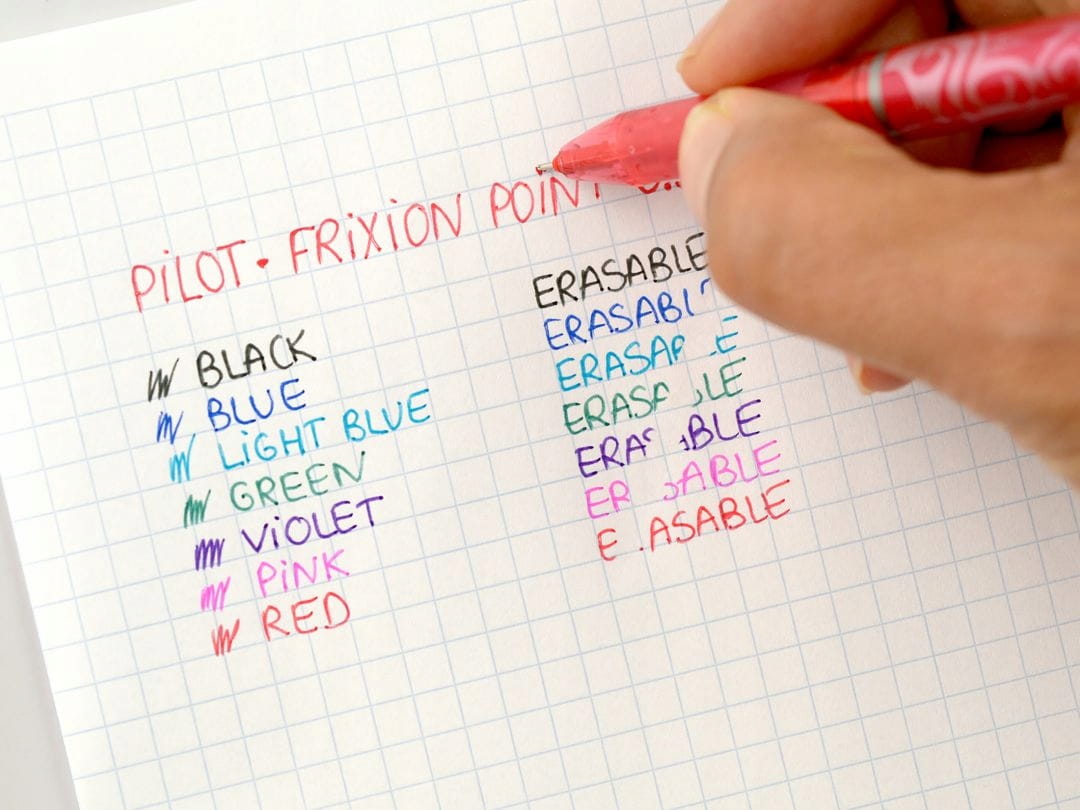 PiLOT • FRiXiON POiNT
BLACK
BLUE
LiGHT BLUE
GREEN
ViOLET
PiNK
RED
ERASABLE
ERASAB
ERASA E
ERAS LE
ERA BLE
ER ABLE
E ASABLE